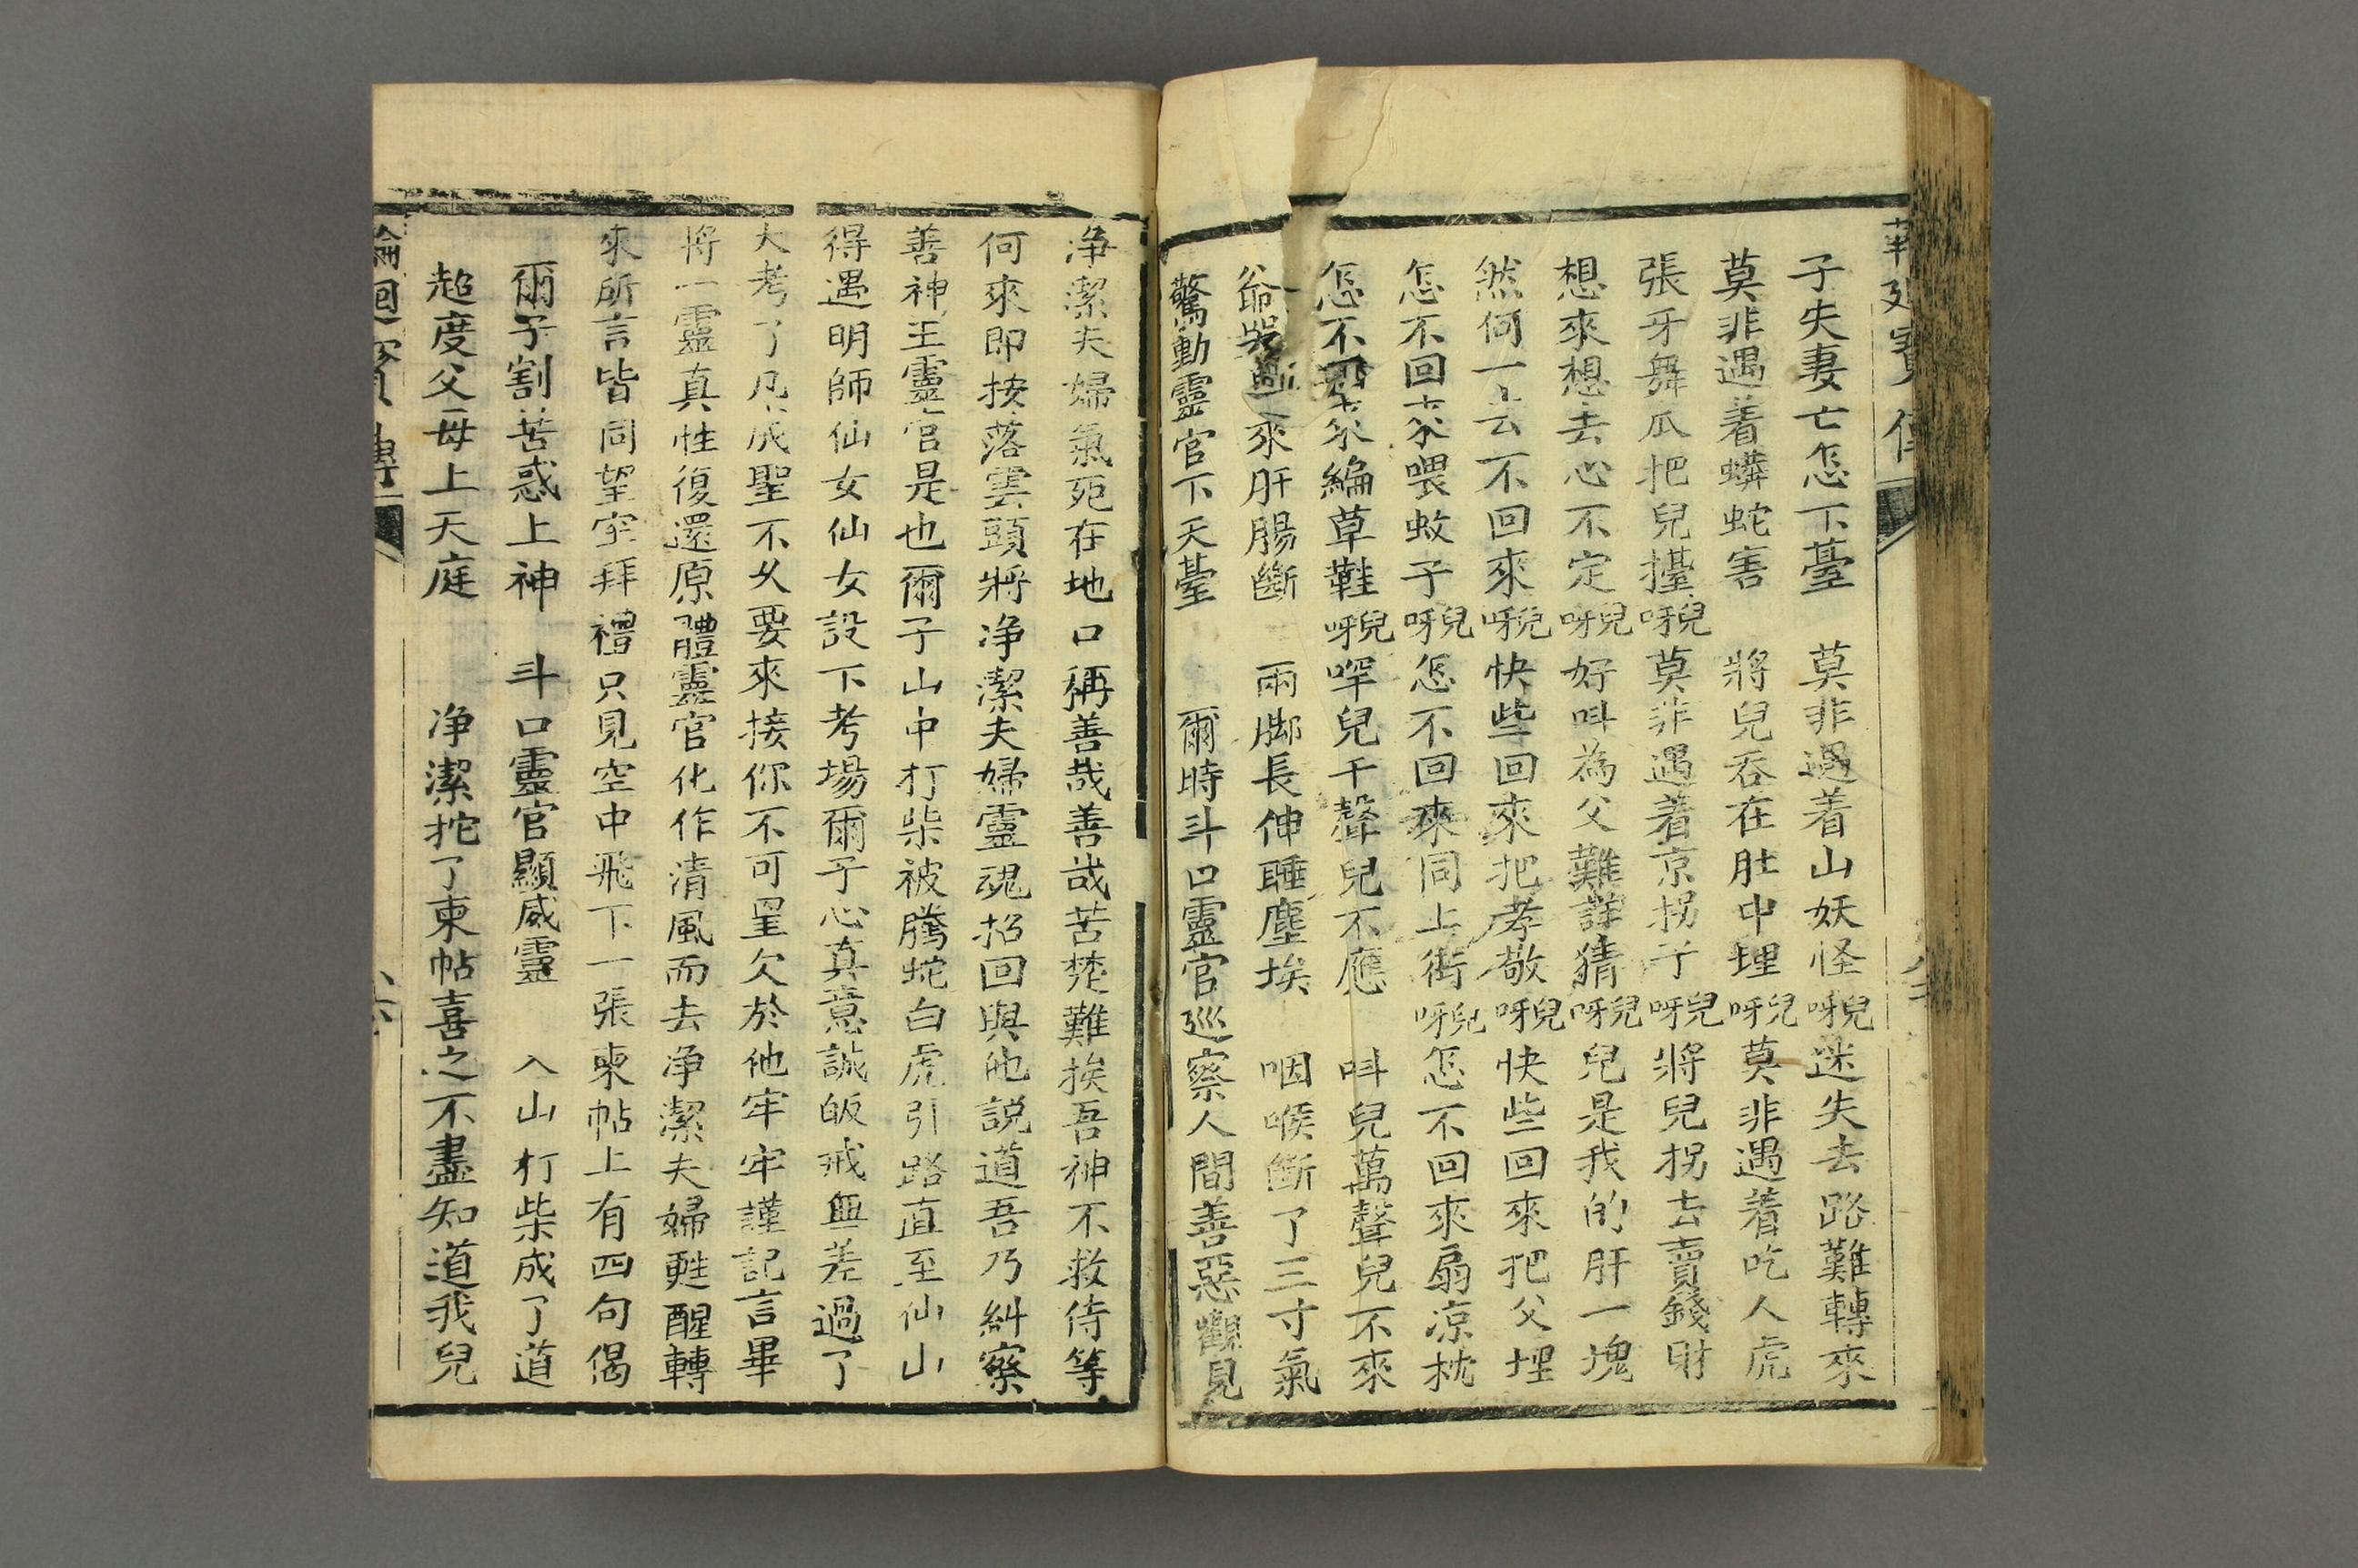 子失妻亡怎下臺　莫非遇着山妖怪兒呀迷失去路難轉來
莫非遇着蟒蛇害　將兒吞在肚中埋兒呀莫非遇着吃人虎
張牙舞瓜把兒擡兒呀莫非遇着京拐子兒呀將兒拐去賣錢財
想來想去心不定兒呀好叫為父難詳猜兒呀兒是我的肝一塊
然何一去不回來兒呀快些回來把孝敬兒呀快些回來把父埋
怎不回來喂蚊子兒呀怎不回來同上街兒呀怎不回來扇凉枕
怎不回來編草鞋兒呀喊兒千聲兒不應　叫兒萬聲兒不來
爺哭來肝腸斷　兩脚長伸睡塵埃　咽喉斷了三寸氣
驚動靈官下天臺　爾時斗口靈官巡察人間善惡觀見
净潔夫婦氣死在地口稱善哉善哉苦楚難挨吾神不救待等
何來即按落雲頭將净潔夫婦靈魂招回與他説道吾乃糾察
善神王靈官是也爾子山中打柴被騰蛇白虎引路直至仙山
得遇明師仙女仙女設下考場爾子心真意誠皈戒無差過了
大考了凡成聖不久要來接你不可罣欠於他牢牢謹記言畢
將一靈真性復還原體靈官化作清風而去净潔夫婦甦醒轉
來所言皆同望空拜禮只見空中飛下一張柬帖上有四句偈
爾子割苦惑上神　斗口靈官顯威靈　入山打柴成了道
超度父母上天庭　净潔挖了柬帖喜之不盡知道我兒
輪迴寳傳